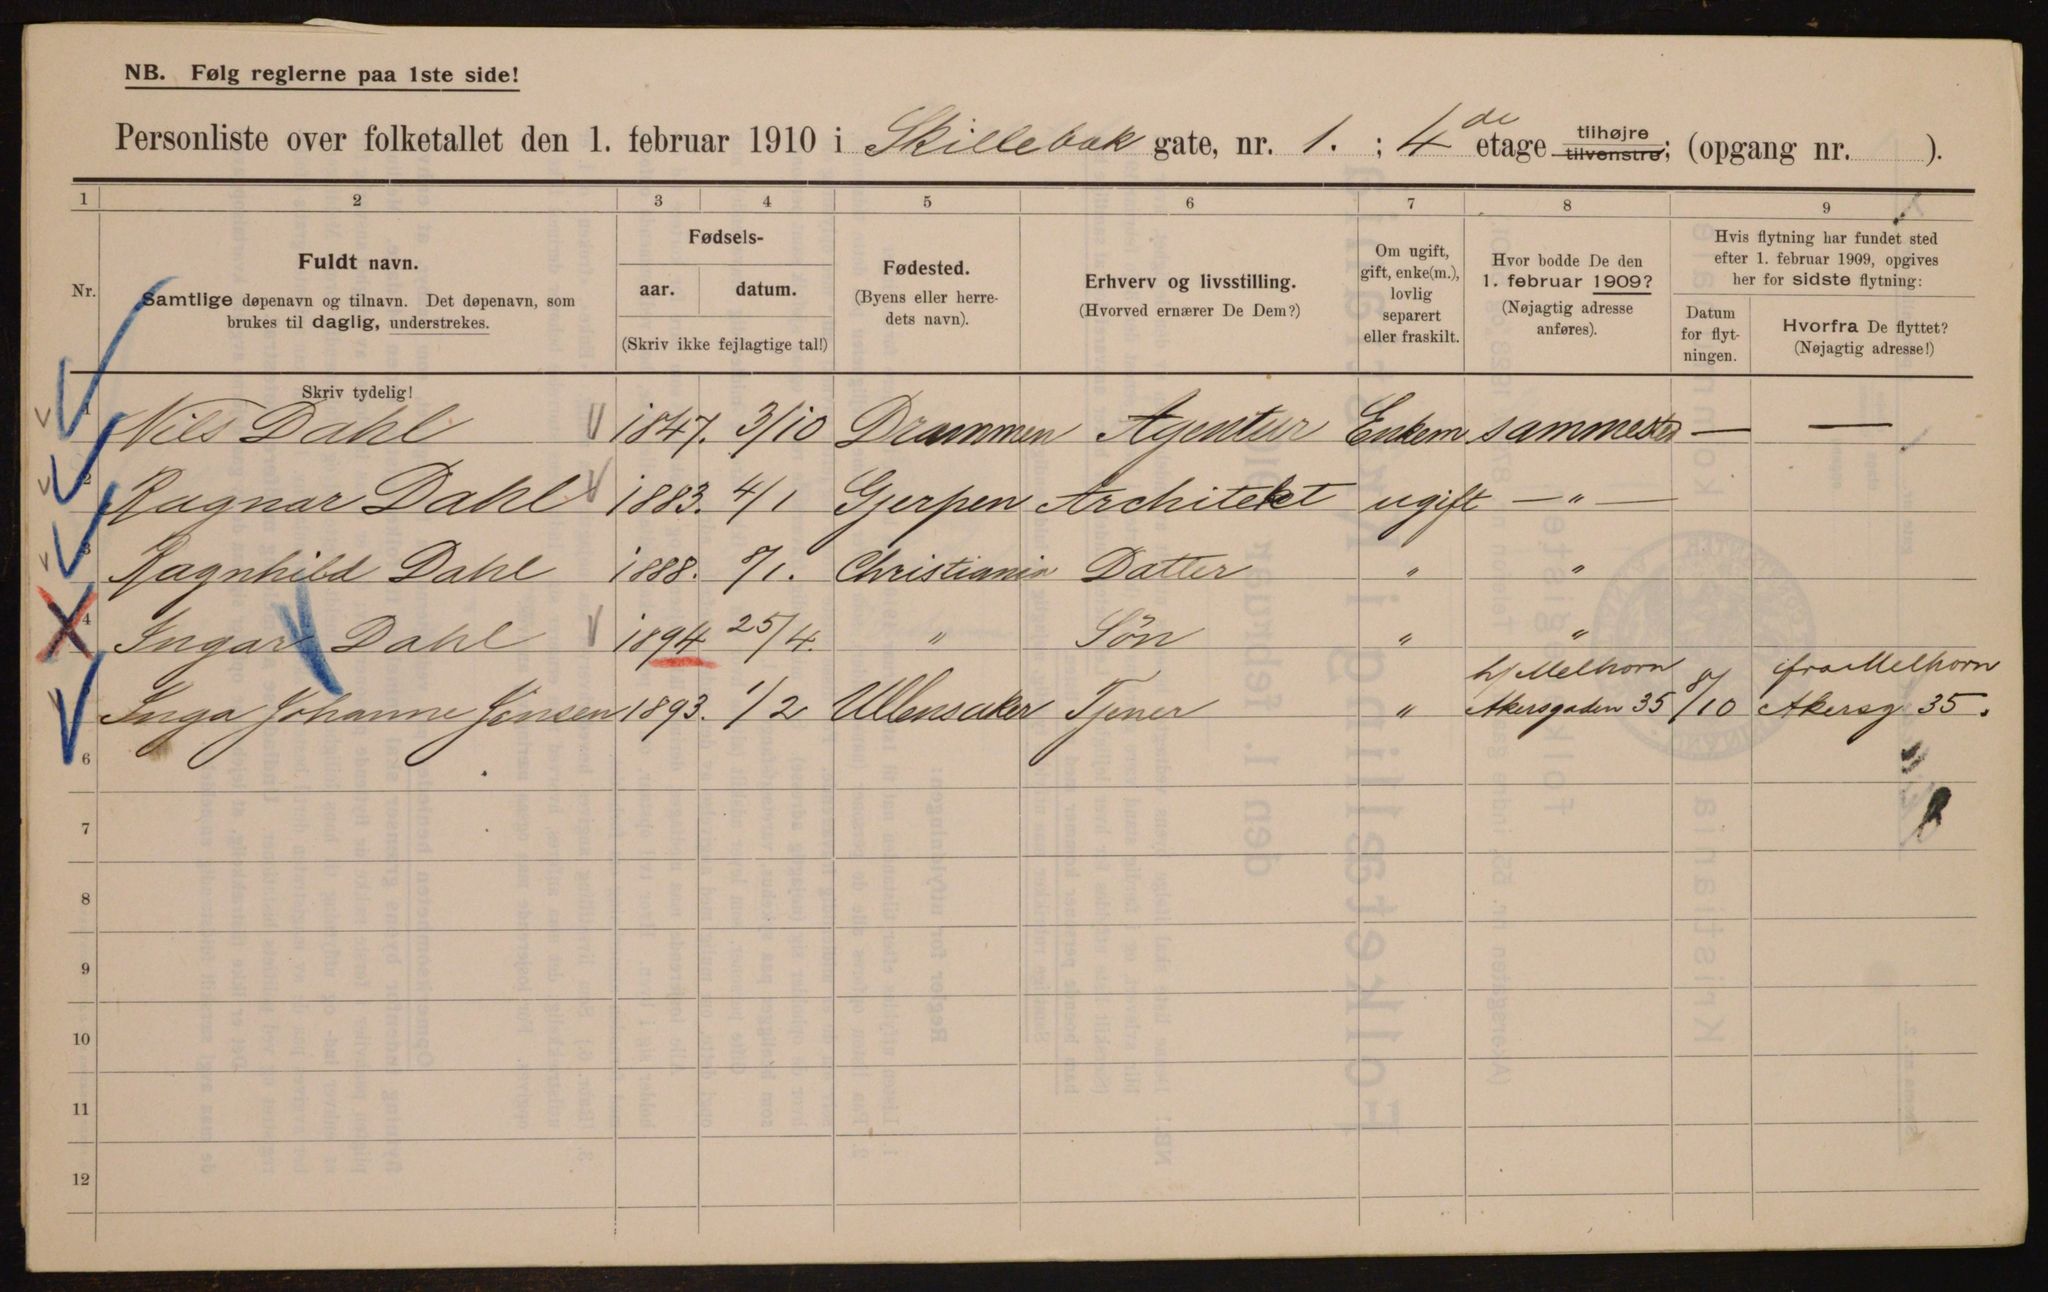 NB. Følg reglerne paa 1ste side!
Personliste over folketallet den 1. februar 1910 i Skillebæk gate, nr. 1. ; 4de etage tilhøjre tilvenstre; (opgang nr. ).
1 2 3 4 5 6 7 8 9
Nr.
Fuldt navn.
Samtlige døpenavn og tilnavn. Det døpenavn, som
brukes til daglig, understrekes.
Fødsels-
aar. datum.
(Skriv ikke fejlagtige tal!)
Fødested.
(Byens eller herre-
dets navn).
Erhverv og livsstilling.
(Hvorved ernærer De Dem?)
Om ugift,
gift, enke(m.),
lovlig
separert
eller fraskilt.
Hvor bodde De den
1. februar 1909?
(Nøjagtig adresse
anføres).
Hvis flytning har fundet sted
efter 1. februar 1909, opgives
her for sidste flytning:
Datum
for flyt-
ningen.
Hvorfra De flyttet?
(Nøjagtig adresse!)
Skriv tydelig!
1 Nils Dahl 1847. 3/10 Drammen Agentur Enkem sammested — —
2 Ragnar Dahl 1883. 4/1 Gjerpen Architekt ugift — " —
3 Ragnhild Dahl 1888. 8/1. Christiania Datter " "
4 Ingar Dahl 1894 25/4. " Søn " "
Inga Johanne Jensen 1893. 1/2 Ullensaker Tjener " h/ Melhorn Akersgaden 35 8/10 fra Melhorn Akersg 35.
6
7
8
9
10
11
12